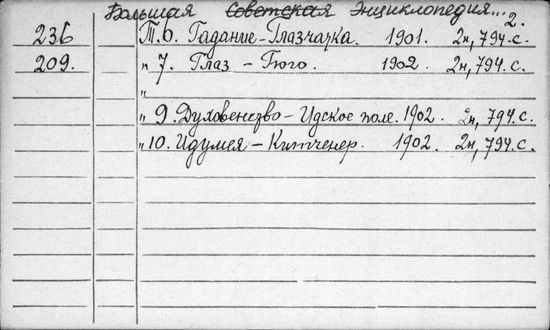 Большая Советская Энциклопедия... 2.
236 Т.6. Гадание – Глазчатка. 1901. 2н, 794.с.
209. " 7. Глаз – Гюго. 1902. 2н, 794.с.
"
" 9. Духовенство – Идское поле. 1902. 2н, 794.с.
" 10. Идумея – Китченер. 1902. 2н, 794.с.